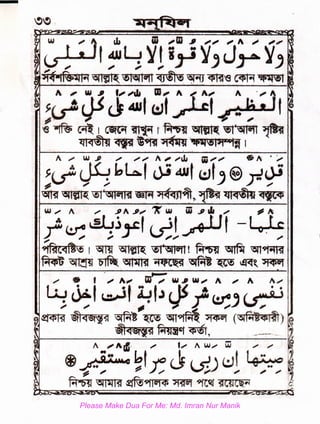 ৩৩ মনযিল
وَلَا حَوْلَ وَلَا قُوَّةَ إِلَّا بِاللّٰهِ الْعَلِيِّ
সর্বশক্তিমান আল্লাহ্ তাআলা ব্যতীত অন্য কারও কোন ক্ষমতা
الْعَظِيْمِ اَعْلَمُ اَنَّ اللّٰهَ عَلٰى كُلِّ شَىْءٍ
ও শক্তি নেই। জেনে রাখুন। নিশ্চয় আল্লাহ তা'আলা সৃষ্টির
যাবতীয় বস্তুর উপর সর্বময় ক্ষমতাসম্পন্ন।
قَدِيْرٌ وَّاَنَّ اللّٰهَ قَدْ اَحَاطَ بِكُلِّ شَىْءٍ
আর আল্লাহ তা'আলার জ্ঞান সর্বব্যাপী, সৃষ্টির যাবতীয় বস্তুকে
عِلْمًا - اَللّٰهُمَّ اِنِّىْ اَعُوْذُ بِكَ مِنْ شَرِّ
পরিবেষ্টিত। আয় আল্লাহ তা'আলা! নিশ্চয় আমি আপনার
নিকট আশ্রয় চাচ্ছি আমার নফছের অনিষ্ট হতে এবং সকল
نَفْسِىْ وَمِنْ شَرِّ كُلِّ دَابَّةٍ اَنْتَ اٰخِذٌ بِنَا
প্রকার জীবজন্তুর অনিষ্ট হতে আপনিই সকল (অনিষ্টকারী)
জীবজন্তুর নিয়ন্ত্রণ কর্তা,
صِيَتِهَا اِنَّ رَبِّىْ عَلٰى صِرَاطٍ مُّسْتَقِيْمٍ
নিশ্চয় আমার প্রতিপালক সরল পথে রয়েছেন
Please Make Dua For Me: Md. Imran Nur Manik